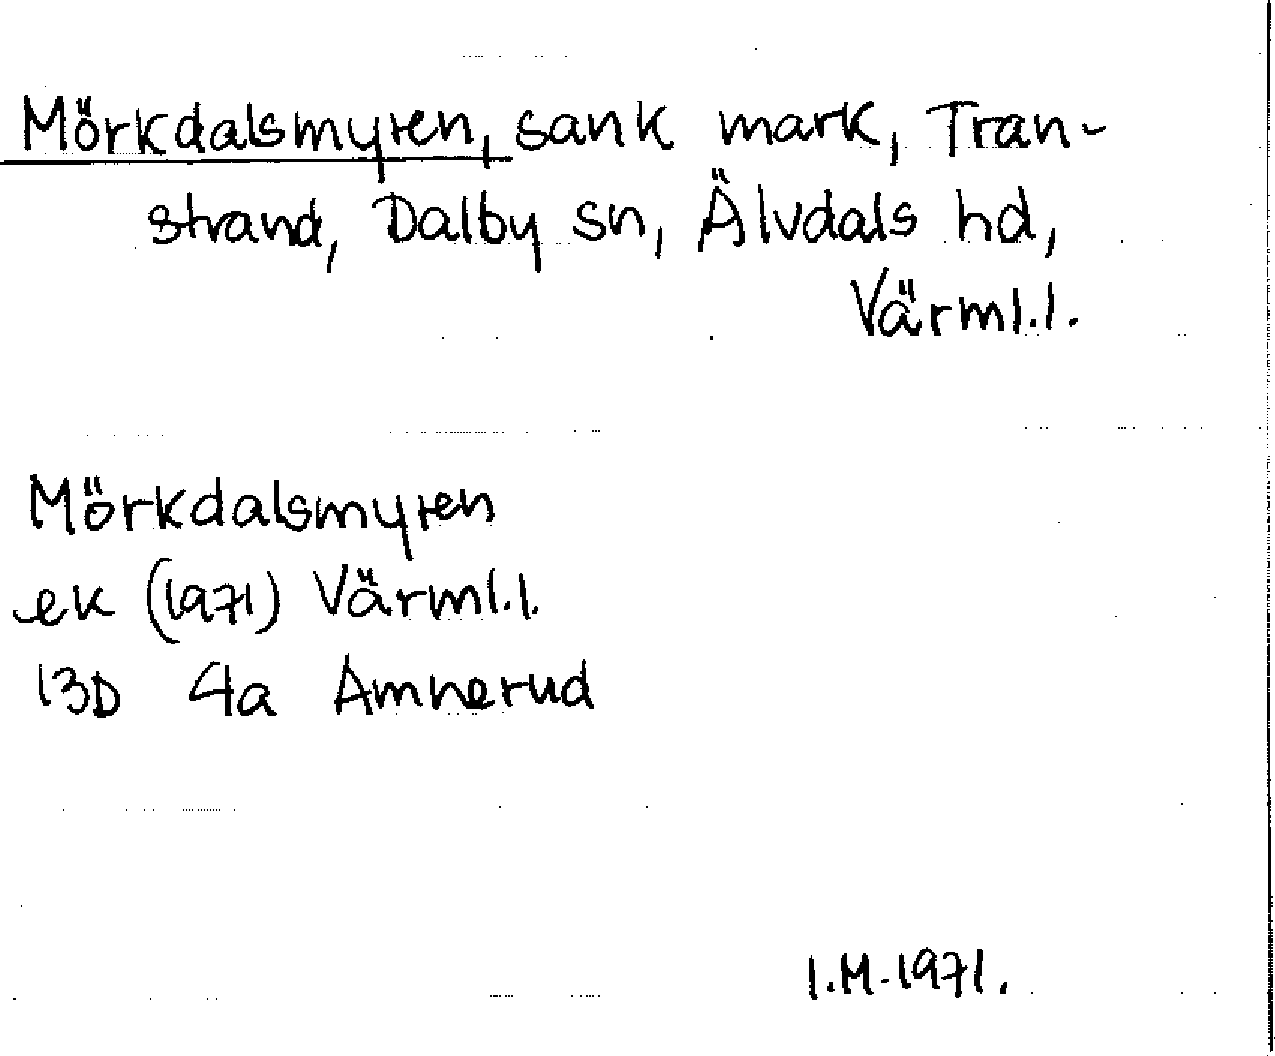 Mörkdalsmyren, sank mark, Tran-
strand, Dalby sn, Älvdals hd,
Värml.l.
Mörkdalsmyren
ek (1971) Värml.l.
13D 4a Amnerud
I.M. 1971.